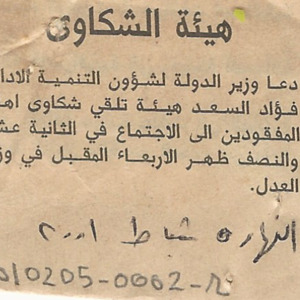 هيئة الشكاوى
دعا وزير الدولة لشؤون التنمية الادا
فؤاد السعد هيئة تلقي شكاوى اهـ
المفقودين الى الاجتماع في الثانية عشـ
والنصف ظهر الاربعاء المقبل في وز
العدل.
النهار ٥ شباط ٢٠٠١
0205-0062-2